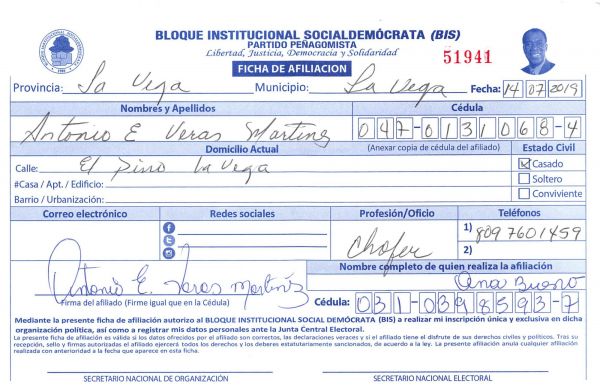 BLOQUE INSTITUCIONAL SOCIALDEMÓCRATA (BIS)
PARTIDO PEÑAGOMISTA
Libertad, Justicia, Democracia y Solidaridad
51941
FICHA DE AFILIACION
Provincia: La Vega Municipio: La Vega Fecha: 14/07/2019
Nombres y Apellidos Cédula
Antonio E Veras Martinez 047-0131068-4
Domicilio Actual (Anexar copia de cédula del afiliado) Estado Civil
Calle: El Pino La Vega Casado
#Casa / Apt. / Edificio: Soltero
Barrio / Urbanización: Conviviente
Correo electrónico Redes sociales Profesión/Oficio Teléfonos
Chofer 1) 809 7601459
2)
Nombre completo de quien realiza la afiliación
Antonio E. Veras Martinez Ana Bueno
Firma del afiliado (Firme igual que en la Cédula) Cédula: 031-0398593-7
Mediante la presente ficha de afiliación autorizo al BLOQUE INSTITUCIONAL SOCIAL DEMÓCRATA (BIS) a realizar mi inscripción única y exclusiva en dicha
organización política, así como a registrar mis datos personales ante la Junta Central Electoral.
La presente ficha de afiliación es válida si los datos ofrecidos por el afiliado son correctos, las declaraciones veraces y si el afiliado tiene el disfrute de sus derechos civiles y políticos. Tras su
recepción, sello y firmas autorizadas el afiliado ejercerá todos los derechos y los deberes estatutariamente sancionados, de acuerdo a la ley. La presente afiliación anula cualquier afiliación
realizada con anterioridad a la fecha que aparece en esta ficha.
SECRETARIO NACIONAL DE ORGANIZACIÓN SECRETARIO NACIONAL ELECTORAL